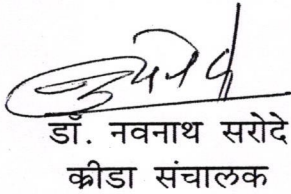 डॉ. नवनाथ सरोदे
क्रीडा संचालक